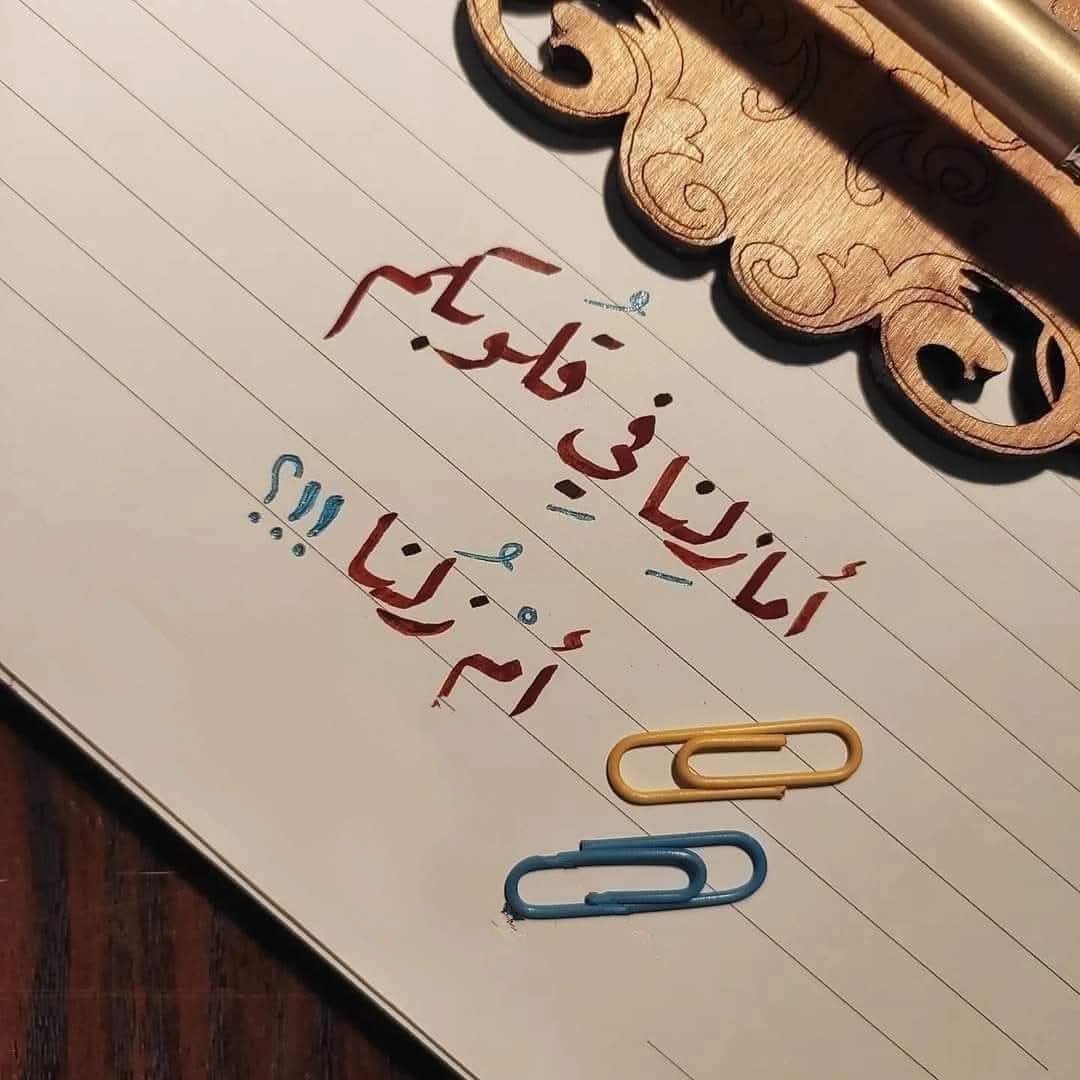 أما زِلنا في قلوبكم
أمْ زُلنا ,,,؟